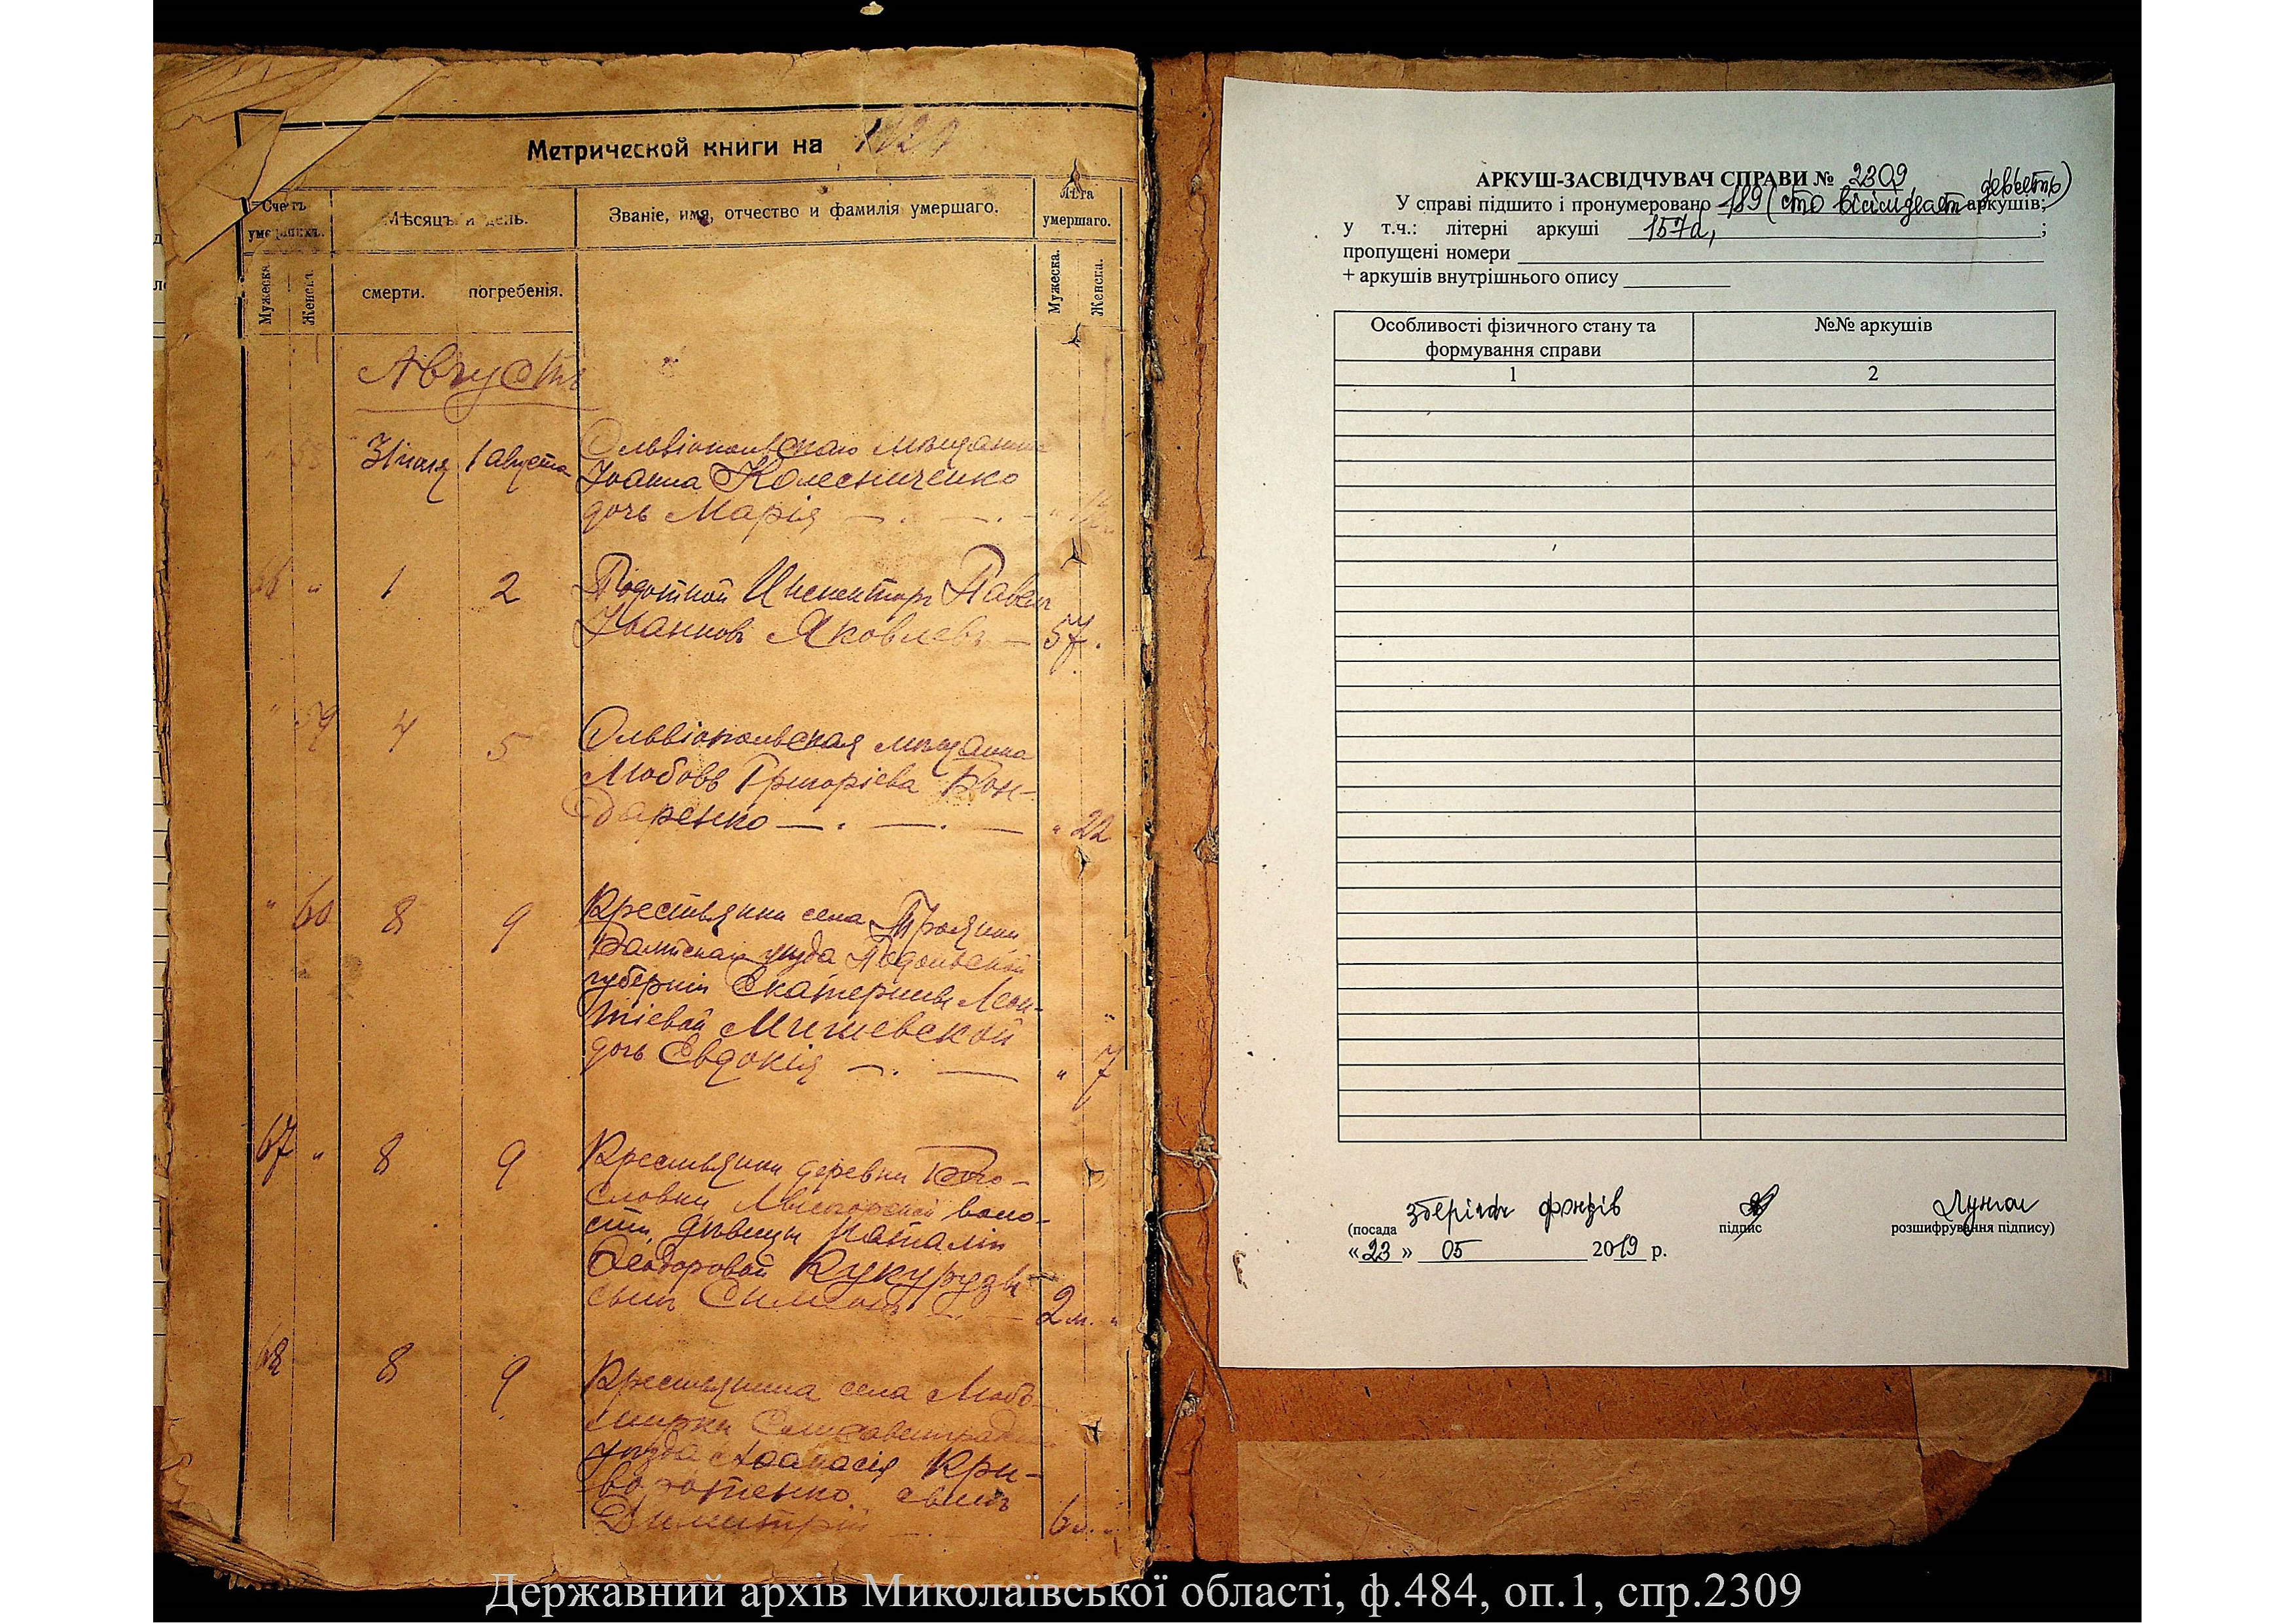 Метрической книги на 1920
Счетъ умершихъ.
Мѣсяцъ и день.
Званіе, имя, отчество и фамилія умершаго.
Лѣта умершаго.
Мужеска.
Женска.
смерти.
погребенія.
Мужеска.
Женска.
Августъ
" 58 31 июля 1 августа Ольвіопольскаго мѣщанина
Іоанна Колесниченко
дочь Марія
66 " 1 2 Податной Инспекторъ Павелъ
Іоанновъ Яковлевъ — 57.
" 59 4 5 Ольвіопольская мѣщанка
Любовь Григоріева Бон-
даренко — . — . — " 22
" 60 8 9 Крестьянки села Трояки
Балтскаго уѣзда Подольской
губерніи Екатерины Леон-
тіевой Мишевской
дочь Евдокія — . — " 7
67 " 8 9 Крестьянки деревни Бого-
словки воло-
сти, дѣвицы Наталіи
Ѳеодоровой Кукурузы
сынъ Симеонъ — 2 м. "
68 8 9 Крестьянина села Любо-
мирки Елисаветградскаго
уѣзда Аѳанасія Кри-
воротенко сынъ
Димитрій
АРКУШ-ЗАСВІДЧУВАЧ СПРАВИ № 2309
У справі підшито і пронумеровано 189 (сто вісімдесят дев'ять) аркушів;
у т.ч.: літерні аркуші 157а, ;
пропущені номери
+ аркушів внутрішнього опису
Особливості фізичного стану та
формування справи
№№ аркушів
1
2
зберігач фондів
(посада
підпис
розшифрування підпису)
«23» 05 2019 р.
Державний архів Миколаївської області, ф.484, оп.1, спр.2309